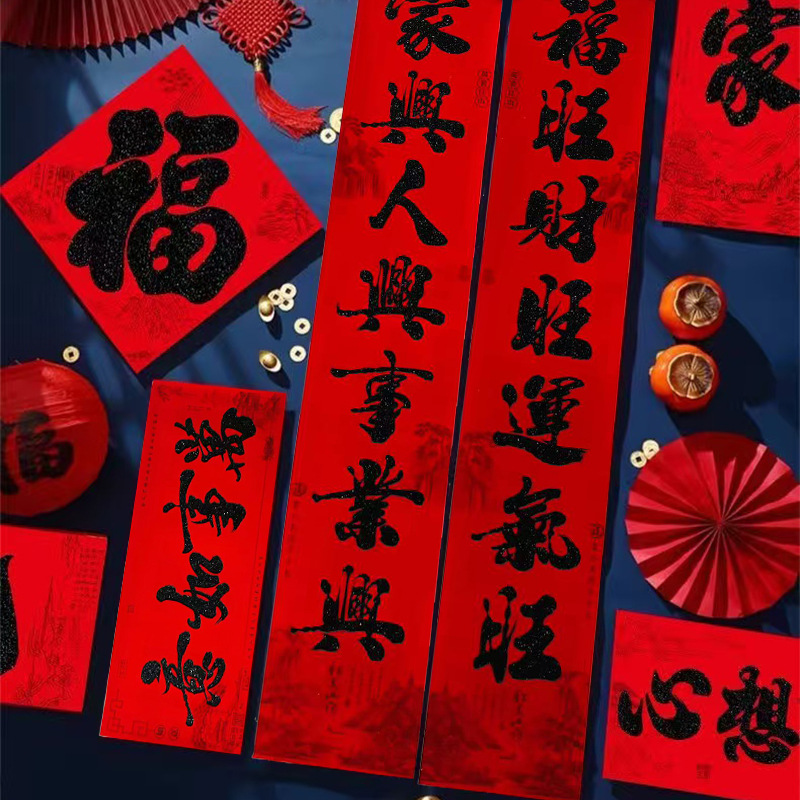 福
家興人興事業興
福旺財旺運氣旺
家
福
萬事如意
心想